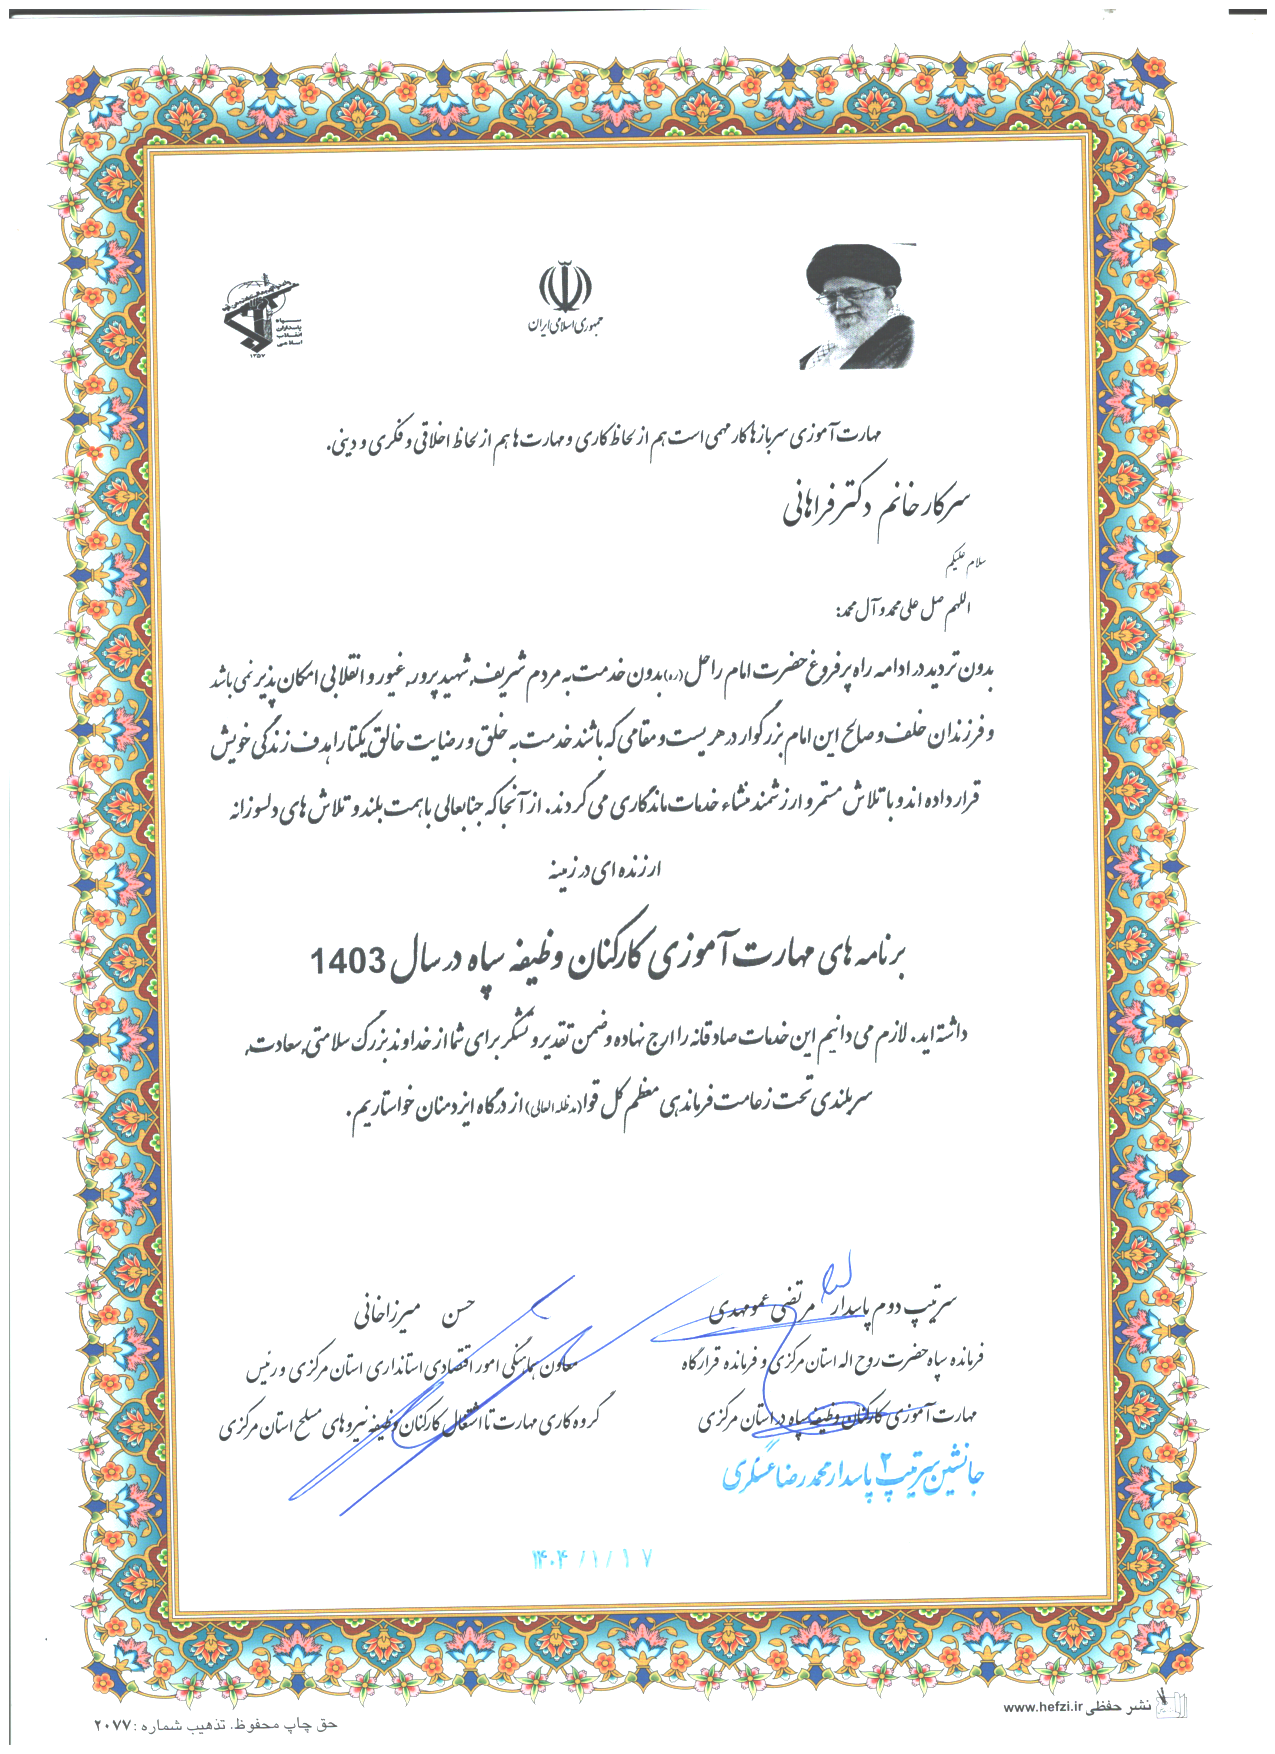 سپاه
پاسداران
انقلاب
اسلامی
۱۳۵۷
جمهوری اسلامی ایران
مهارت آموزی سربازها کار مهمی است هم از لحاظ کاری و مهارت ها هم از لحاظ اخلاقی و فکری و دینی.
سرکار خانم دکتر فراهانی
سلام علیکم
اللهم صل علی محمد و آل محمد:
بدون تردید در ادامه راه پرفروغ حضرت امام راحل (ره) بدون خدمت به مردم شریف, شهید پرور, غیور و انقلابی امکان پذیر نمی باشد
و فرزندان خلف و صالح این امام بزرگوار در هر پست و مقامی که باشند خدمت به خلق و رضایت خالق یکتا را هدف زندگی خویش
قرار داده اند و با تلاش مستمر و ارزشمند منشاء خدمات ماندگاری می گردند. از آنجا که جنابعالی با همت بلند و تلاش های دلسوزانه
ارزنده ای در زمینه
برنامه های مهارت آموزی کارکنان وظیفه سپاه در سال 1403
داشته اید. لازم می دانیم این خدمات صادقانه را ارج نهاده و ضمن تقدیر و تشکر برای شما از خداوند بزرگ سلامتی, سعادت,
سربلندی تحت زعامت فرماندهی معظم کل قوا (مدظله العالی) از درگاه ایزد منان خواستاریم.
سرتیپ دوم پاسدار مرتضی عمومهدی
فرمانده سپاه حضرت روح اله استان مرکزی و فرمانده قرارگاه
مهارت آموزی کارکنان وظیفه سپاه در استان مرکزی
جانشین سرتیپ ۲ پاسدار محمدرضا عسگری
حسن میرزاخانی
معاون هماهنگی امور اقتصادی استانداری استان مرکزی و رئیس
گروه کاری مهارت تا اشتغال کارکنان وظیفه نیروهای مسلح استان مرکزی
۱۴۰۴/۱/۱۷
نشر حفظی www.hefzi.ir
حق چاپ محفوظ. تذهیب شماره : ۲۰۷۷